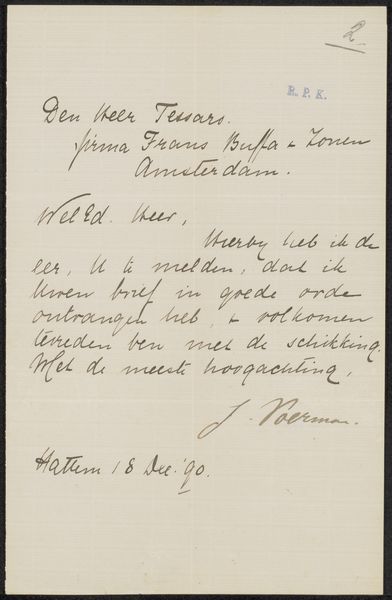 2
R. P. K.
Den Heer Tessaro.
firma Frans Buffa & Zonen
Amsterdam.
WelEd. Heer,
Hierbij heb ik de
eer, U te melden, dat ik
Uwen brief in goede orde
ontvangen heb, & volkomen
tevreden ben met de schikking.
Met de meeste hoogachting,
J. Voerman.
Hattem 18 Dec. '90.